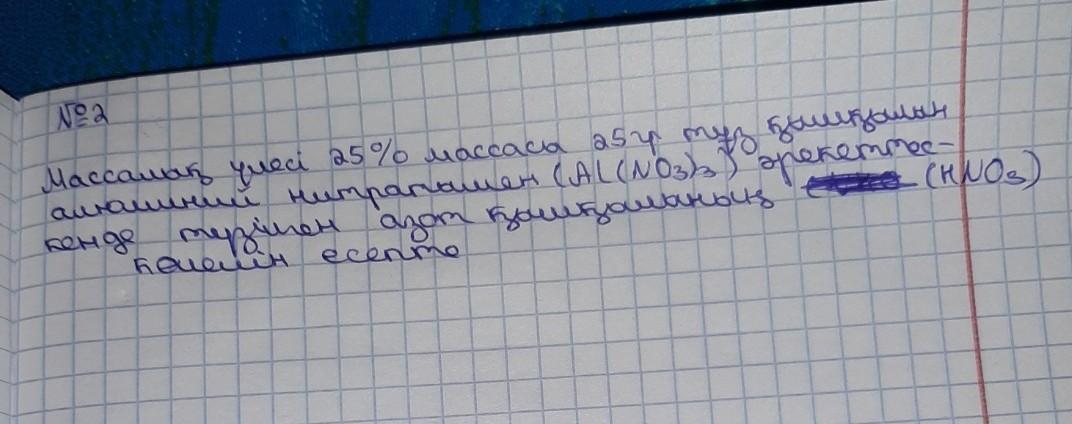 №2
Массалық үлесі 25% массасы 25г тұз қышқылын
алюминий нитратымен (Al(NO3)3) әрекеттес-
кенде түзілген азот қышқылының (HNO3)
көлемін есепте